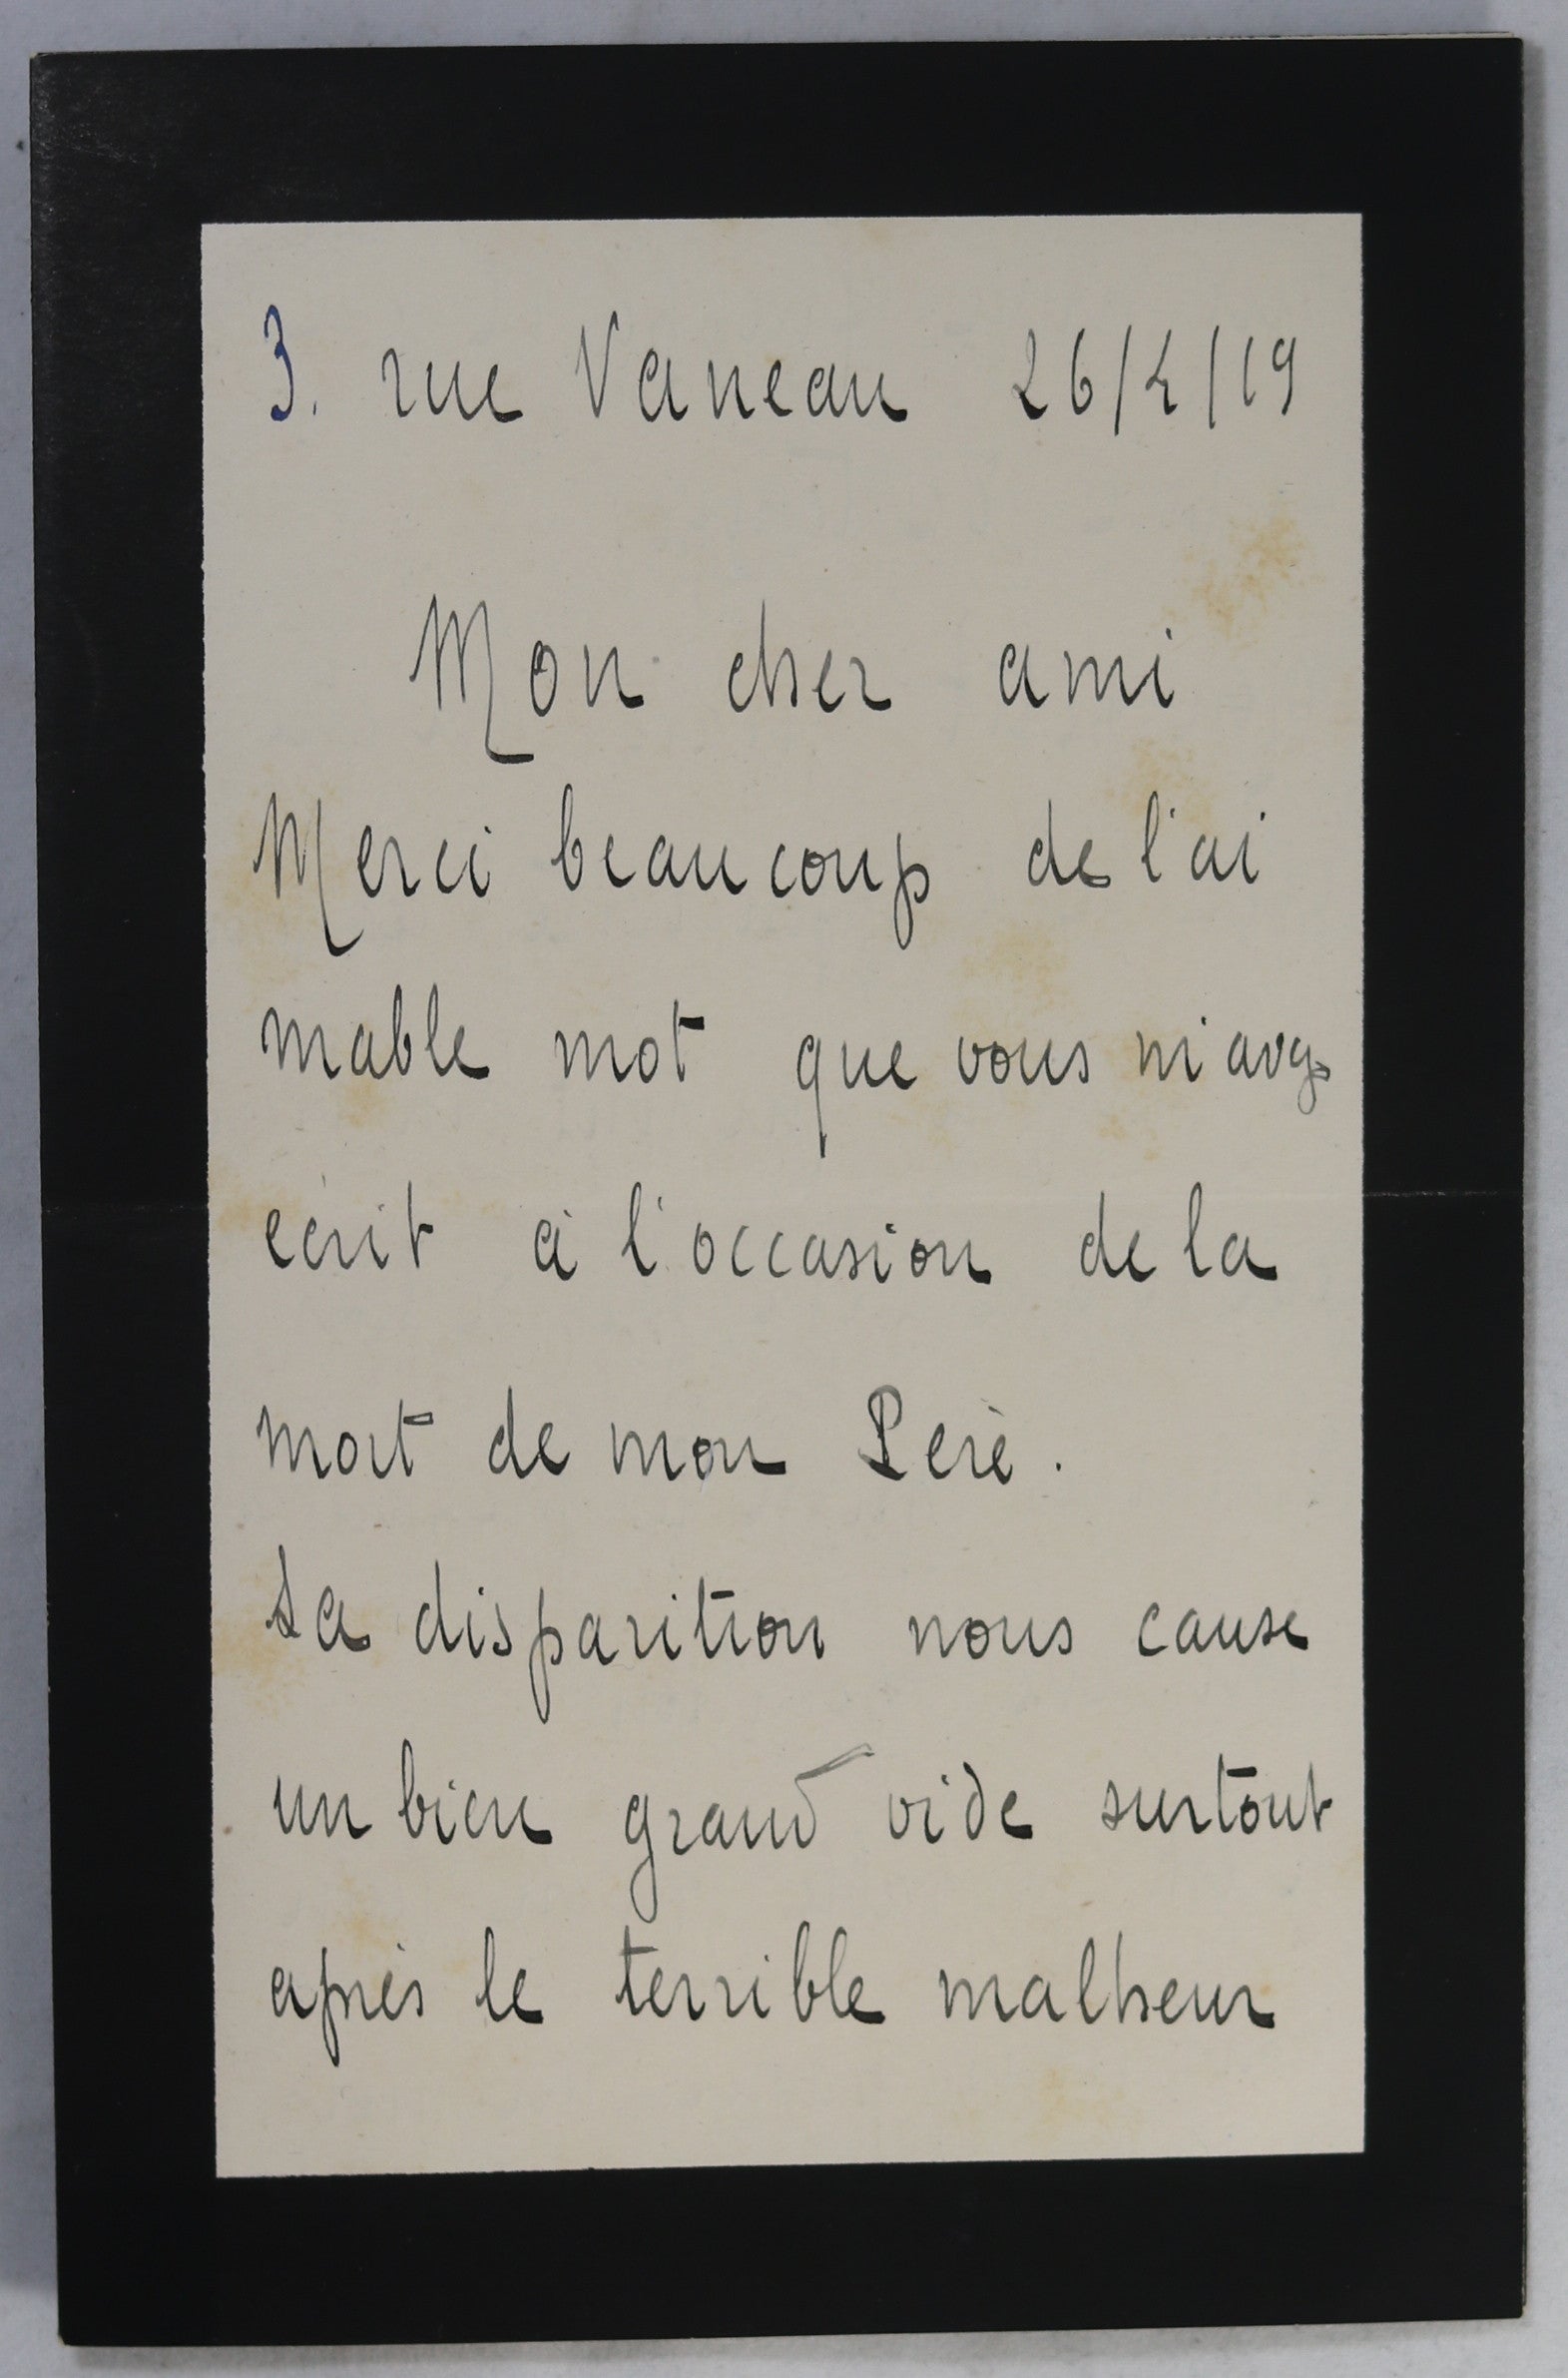 3. rue Vaneau 26/4/19
Mon cher ami
Merci beaucoup de l'ai
mable mot que vous m'avez
ecrit à l'occasion de la
mort de mon Père.
Sa disparition nous cause
un bien grand vide surtout
après le terrible malheur